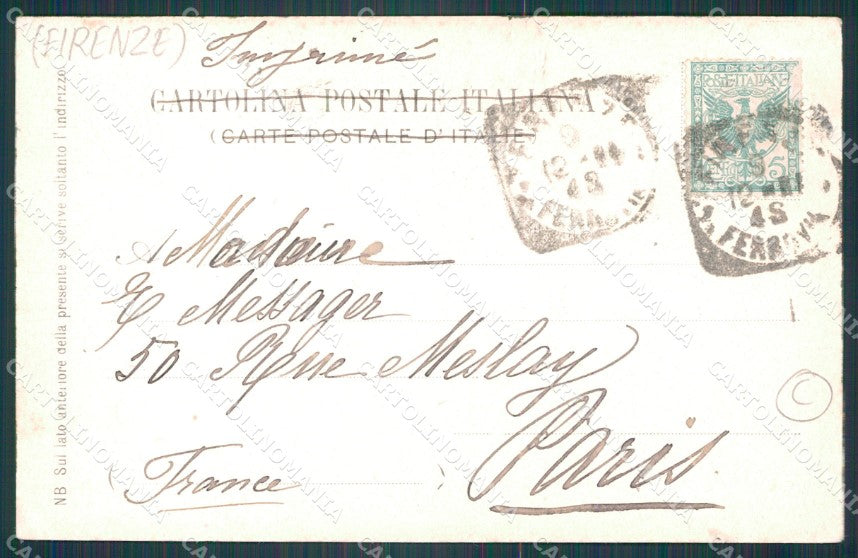 (FIRENZE)
Imprimé
CARTOLINA POSTALE ITALIANA
(CARTE POSTALE D'ITALIE)
POSTE ITALIANE
5
FERROVIA
FERROVIA
A Madame
E Messager
50 Rue Meslay
Paris
France
NB Sul lato anteriore della presente si scrive soltanto l'indirizzo
C
CARTOLINOMANIA